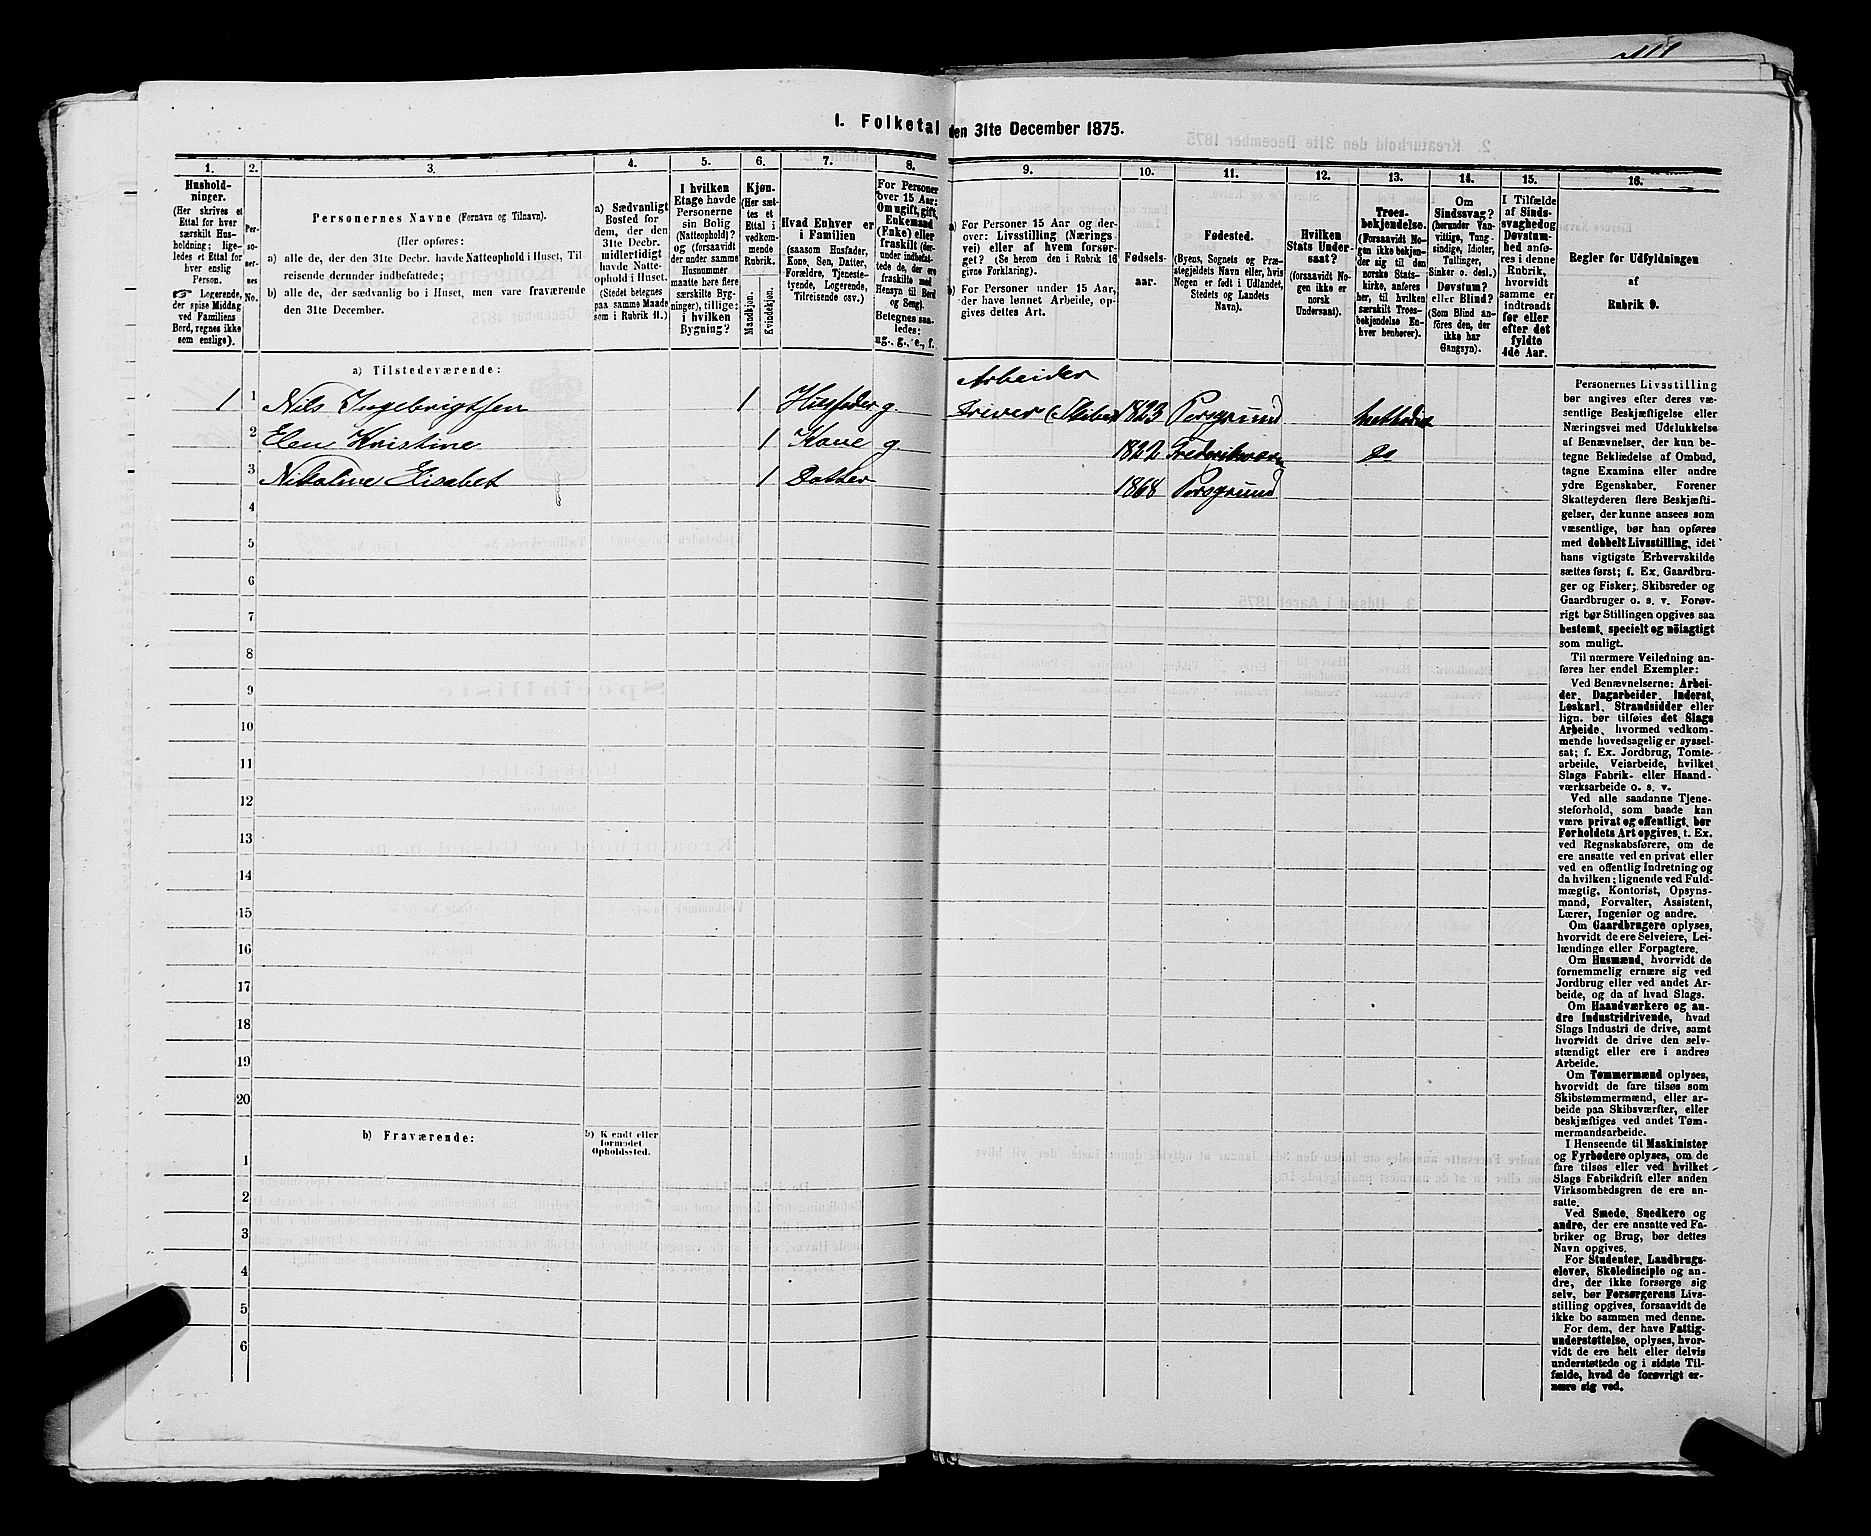 I. Folketal den 31te December 1875.
1.
Husholdninger.
(Her skrives et
Ettal for hver
særskilt Husholdning; ligeledes
et Ettal for
hver enslig
Person.
Logerende,
der spise Middag
ved Familiens
Bord, regnes ikke
som enslige).
2.
Personernes
No.
3.
Personernes Navne (Fornavn og Tilnavn).
(Her opføres:
a) alle de, der den 31te Decbr. havde Natteophold i Huset, Tilreisende
derunder indbefattede;
b) alle de, der sædvanlig bo i Huset, men vare fraværende
den 31te December.
4.
a) Sædvanligt
Bosted for
dem, der den
31te Decbr.
midlertidigt
havde Natteophold
i Huset.
(Stedet betegnes
paa samme Maade
som i Rubrik 11.)
5.
I hvilken
Etage havde
Personerne
sin Bolig
(Natteophold)?
og (forsaavidt
der under samme
Husnummer
maatte høre flere
særskilte Bygninger),
tillige:
i hvilken
Bygning?
6.
Kjøn.
(Her sættes
et
Ettal i
vedkommende
Rubrik.
Mandkjøn.
Kvindekjøn.
7.
Hvad Enhver er
i Familien
(saasom Husfader,
Kone, Søn, Datter,
Forældre, Tjenestetyende,
Logerende,
Tilreisende osv.)
8.
For Personer
over 15 Aar:
Om ugift, gift,
Enkemand
(Enke) eller
fraskilt (derunder
indbefattede
de, der ere
fraskilte med
Hensyn til Bord
og Seng).
Betegnes saaledes:
ug., g., e., f.
9.
a) For Personer 15 Aar og derover:
Livsstilling (Næringsvei)
eller af hvem forsørget?
(Se herom den i Rubrik 16
givne Forklaring).
b) For Personer under 15 Aar,
der have lønnet Arbeide, opgives
dettes Art.
10.
Fødselsaar.
11.
Fødested.
(Byens, Sognets og Præstegjeldets
Navn eller, hvis
Nogen er født i Udlandet,
Stedets og Landets
Navn).
12.
Hvilken
Stats Undersaat?
(forsaavidt Nogen
ikke er
norsk
Undersaat).
13.
Troesbekjendelse.
(Forsaavidt Nogen
ikke bekjender
sig til den
norske Statskirke,
anføres
her, til hvilken
særskilt Troesbekjendelse
Enhver
henhører).
14.
Om
Sindssvag?
(herunder Vanvittige,
Tungsindige,
Idioter,
Tullinger,
Sinker o. desl.)
Døvstum?
eller Blind?
(Som Blind anføres
den, der
ikke har
Gangsyn).
15.
I Tilfælde
af Sindssvaghed
og
Døvstumhed
anføres
i denne
Rubrik,
hvorvidt
samme er
indtraadt
før eller
efter det
fyldte
4de Aar.
16.
Regler for Udfyldningen
af
Rubrik 9.
a) Tilstedeværende:
Arbeider
1 1 Nils Ingebrigtsen 1 Husfader g. 1823 Porsgrund
2 Elen Kristine 1 Kone g 1822 Frederiksværn Do
3 Nikoline Elisabet 1 Datter 1868 Porsgrund
4
5
6
7
8
9
10
11
12
13
14
15
16
17
18
19
20
b) Fraværende:
b) Kjendt eller
formodet
Opholdssted.
1
2
3
4
5
6
Personernes Livsstilling
bør angives efter deres væsentlige
Beskjæftigelse eller
Næringsvei med Udelukkelse
af Benævnelser, der kun betegne
Beklædelse af Ombud,
tagne Examina eller andre
ydre Egenskaber. Forener
Skatteyderen flere Beskjæftigelser,
der kunne ansees som
væsentlige, bør han opføres
med dobbelt Livsstilling, idet
hans vigtigste Erhvervskilde
sættes først; f. Ex. Gaardbruger
og Fisker; Skibsreder og
Gaardbruger o. s. v. Forøvrigt
bør Stillingen opgives saa
bestemt, specielt og nøiagtigt
som muligt.
Til nærmere Veiledning anføres
her endel Exempler:
Ved Benævnelserne: Arbeider,
Dagarbeider, Inderst,
Løskarl, Strandsidder eller
lign. bør tilføies det Slags
Arbeide, hvormed vedkommende
hovedsagelig er sysselsat;
f. Ex. Jordbrug, Tomtearbeide,
Veiarbeide, hvilket
Slags Fabrik- eller Haandværksarbeide
o. s. v.
Ved alle saadanne Tjenesteforhold,
som baade kan
være privat og offentligt, bør
Forholdets Art opgives, t. Ex.
ved Regnskabsførere, om de
ere ansatte ved en privat eller
ved en offentlig Indretning og
da hvilken; lignende ved Fuldmægtig,
Kontorist, Opsynsmand,
Forvalter, Assistent,
Lærer, Ingeniør og andre.
Om Gaardbrugere oplyses,
hvorvidt de ere Selveiere, Leilændinge
eller Forpagtere.
Om Husmænd, hvorvidt de
fornemmelig ernære sig ved
Jordbrug eller ved andet Arbeide,
og da af hvad Slags.
Om Haandværkere og andre
Industridrivende, hvad
Slags Industri de drive, samt
hvorvidt de drive den selvstændigt
eller ere i andres
Arbeide.
Om Tømmermænd oplyses,
hvorvidt de fare tilsøs som
Skibstømmermænd, eller arbeide
paa Skibsværfter, eller
beskjæftiges ved andet Tømmermandsarbeide.
I Henseende til Maskinister
og Fyrbødere oplyses, om de
fare tilsøs eller ved hvilket
Slags Fabrikdrift eller anden
Virksombedsgren de ere ansatte.
Ved Smede, Snedkere og
andre, der ere ansatte ved Fabriker
og Brug, bør dettes
Navn opgives.
For Studenter, Landbrugselever,
Skoledisciple og andre,
der ikke forsørge sig
selv, bør Forsørgerens Livsstilling
opgives, forsaavidt de
ikke bo sammen med denne.
For dem, der have Fattigunderstøttelse,
oplyses, hvorvidt
de ere helt eller delvis
understøttede og i sidste Tilfælde,
hvad de forøvrigt ernære
sig ved.